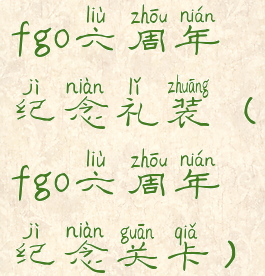 liù zhōu nián
fgo六周年
jì niàn lǐ zhuāng
纪念礼装（
liù zhōu nián
fgo六周年
jì niàn guān qiǎ
纪念关卡）